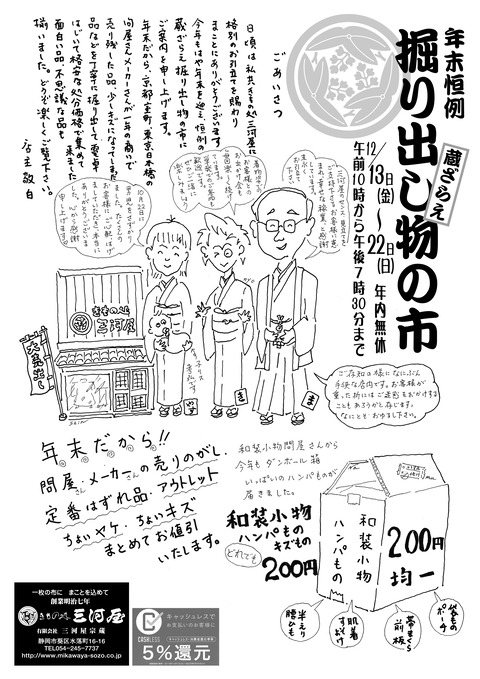 年末恒例
掘り出し物の市
蔵ざらえ
12/13日(金)〜22日(日) 年内無休
午前10時から午後7時30分まで
ごあいさつ
日頃は私共きもの処三河屋に
格別のお引立てを賜わり
まことにありがとうございます。
今年もはや年末を迎え、恒例の
蔵ざらえ掘り出し物の市に
ご案内を申し上げます。
年末だから、京都室町、東京日本橋の
問屋さんメーカーさんが一年の商いで
売り残した品、少しキズになってしまった
品などを丁寧に掘り出して、要卓
はじいて格安な処分価格で集めて来ました
面白い品、不思議な品も
揃いました。どうぞ楽しくご覧下さい。
店主敬白
きもの処
三河屋
大売出し
ご存知の様になにぶん
手狭な店内です。お客様が
重った折にはご迷惑をおかけする
こともあろうかと存じます。
なにとぞおゆるし下さい。
年末だから!!
問屋さん、メーカーさんの売りのがし、
定番はずれ品・アウトレット
ちょいヤケ、ちょいキズ
まとめてお値引
いたします。
和装小物問屋さんから
今年もダンボール箱
いっぱいのハンパものが
届きました。
和装小物
ハンパもの
キズもの
どれでも
200円
200円
均一
和装小物
ハンパもの
袋もの
ポーチ
帯まくら
前板
肌着
すそよけ
半えり
腰ひも
一枚の布に まことを込めて
創業明治七年
きもの処 三河屋
有限会社 三河屋宗蔵
静岡市葵区水落町16-16
TEL054-245-7737
http://www.mikawaya-sozo.co.jp
キャッシュレスで
お支払いのお客様に
CASHLESS
5%還元